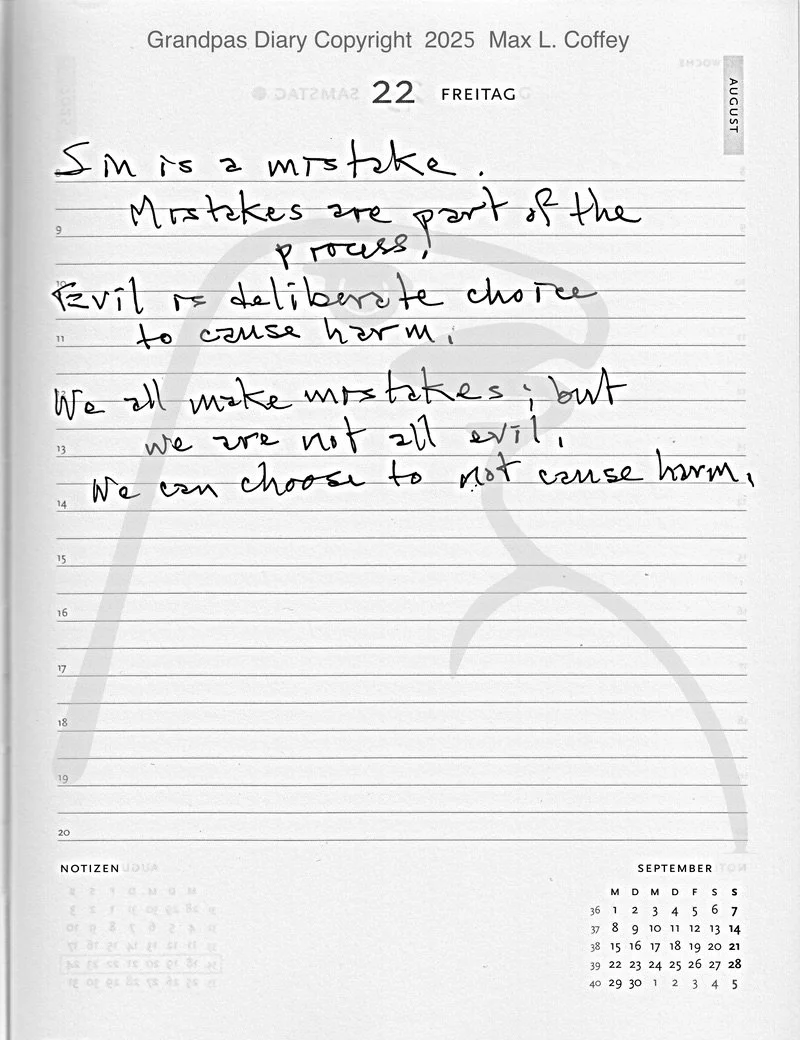 Grandpas Diary Copyright 2025 Max L. Coffey
22 FREITAG
AUGUST
Sin is a mistake.
Mistakes are part of the
process!
Evil is deliberate choice
to cause harm.
We all make mistakes; but
we are not all evil.
We can choose to not cause harm.
9
10
11
13
14
15
16
17
18
19
20
NOTIZEN
SEPTEMBER
M D M D F S S
36 1 2 3 4 5 6 7
37 8 9 10 11 12 13 14
38 15 16 17 18 19 20 21
39 22 23 24 25 26 27 28
40 29 30 1 2 3 4 5